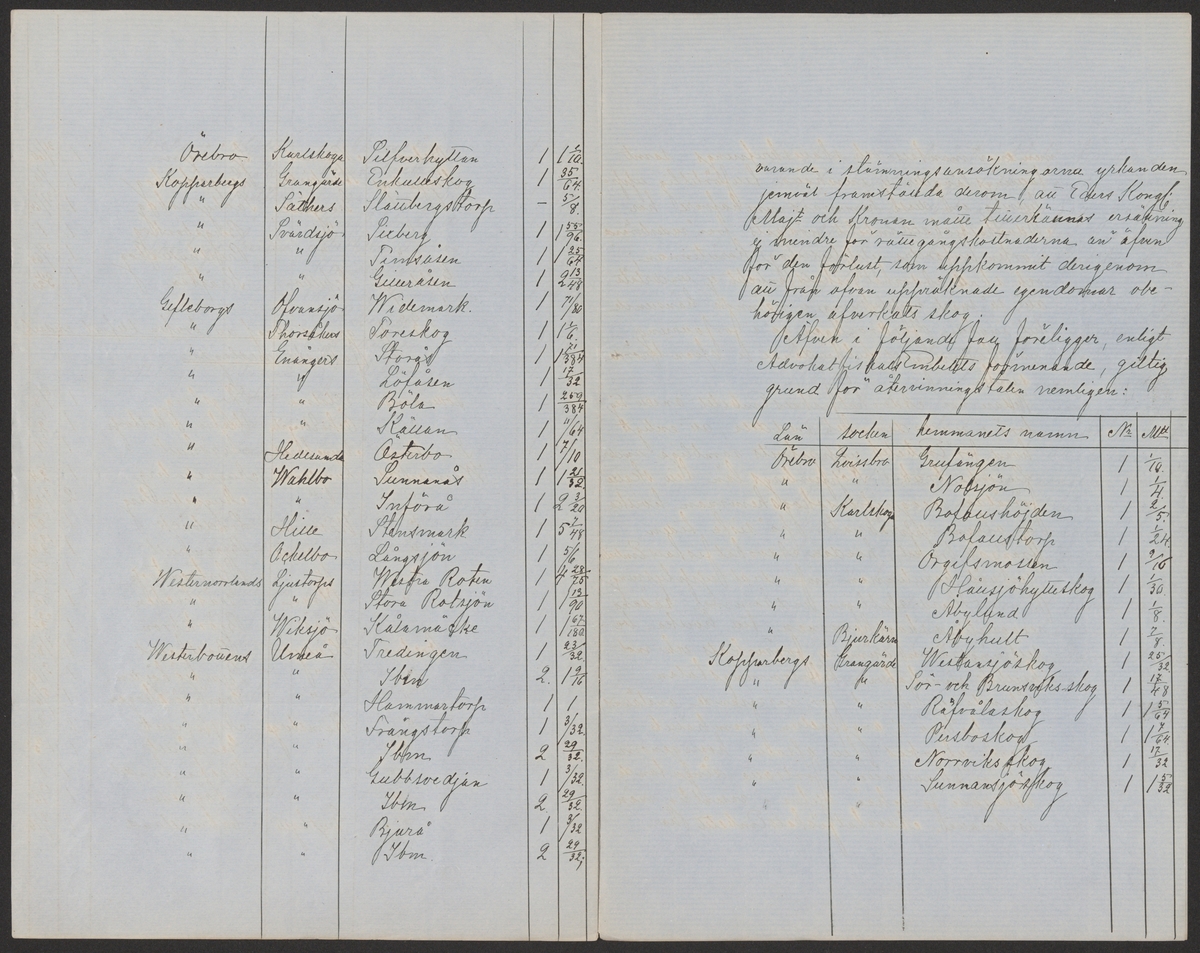 Örebro Karlskoga Silfverhyttan 1 1 1/10.
Kopparbergs Grangärde Enkullaskog 1 35/64.
" Säthers Slättbergstorp – 5/8.
" Svärdsjö Sieberg 1 1 55/96.
" " Timsåsen 1 1 25/64
" " Gilleråsen 1 2 13/48
Gefleborgs Ofvansjö Widemark. 1 71/80
" Thorsåkers Toreskog 1 1 1/6.
" Enångers Storgå 1 1 71/384
" " Löfåsen 1 17/32
" " Böla 1 269/384
" " Källan 1 11/64
" Hedesunda Österbo 1 7/10
" Wahlbo Sunnanås 1 1 21/32
" " Införå 1 2 3/20
" Hille Stensmark 1 5 1/48
" Ockelbo Långsjön 1 5/6
Westernorrlands Ljustorps Westra Roten 1 4 28/75
" " Stora Rotsjön 1 1 13/90
" Wiksjö Kålamäcke 1 1 67/180
Westerbottens Umeå Tredingen 1 23/32
" " Ibm 2. 1 9/16
" Hammartorp 1 1
" " Trångstorp 1 3/32
" " Ibm 2 29/32.
" " Gubbsvedjan 1 3/32
" " Ibm 2 29/32.
" " Bjurå 1 3/32
" " Ibm. 2 29/32;
varande i stämningsansökningarna yrkanden
jemväl framställda derom, att Eders Kongl.
Majt och Kronan måtte tillerkännas ersättning
ej mindre för rättegångskostnaderna än äfven
för den förlust, som uppkommit derigenom
att från ofvan uppräknade egendomar obe-
hörigen afverkats skog.
Äfven i följande fall föreligger, enligt
Advokatfiskals Embetets förmenande, giltig
grund för återvinningstalan nemligen:
Län socken hemmanets namn No Mtl
Örebro Lvissbro Grufängen 1 1/10.
" " Notsjön 1 1/4
" Karlskoga Bofallshöjden 1 2/5.
" " Bofallstorp 1 1/24
" " Örgifsmossen 1 9/16
" " Håksjöhytteskog 1 1/30.
" " Åbylund 1 1/8.
" Bjurkärn Åbyhult 1 7/8.
Kopparbergs Grangärde Westansjöskog 1 25/32
" " Sör- och Brunsviksskog 1 17/48
" " Räfvålaskog 1 1 5/64
" " Persboskog 1 1 7/64.
" " Norrviksskog 1 17/32
" " Sunnansjöskog 1 1 5/32
" "